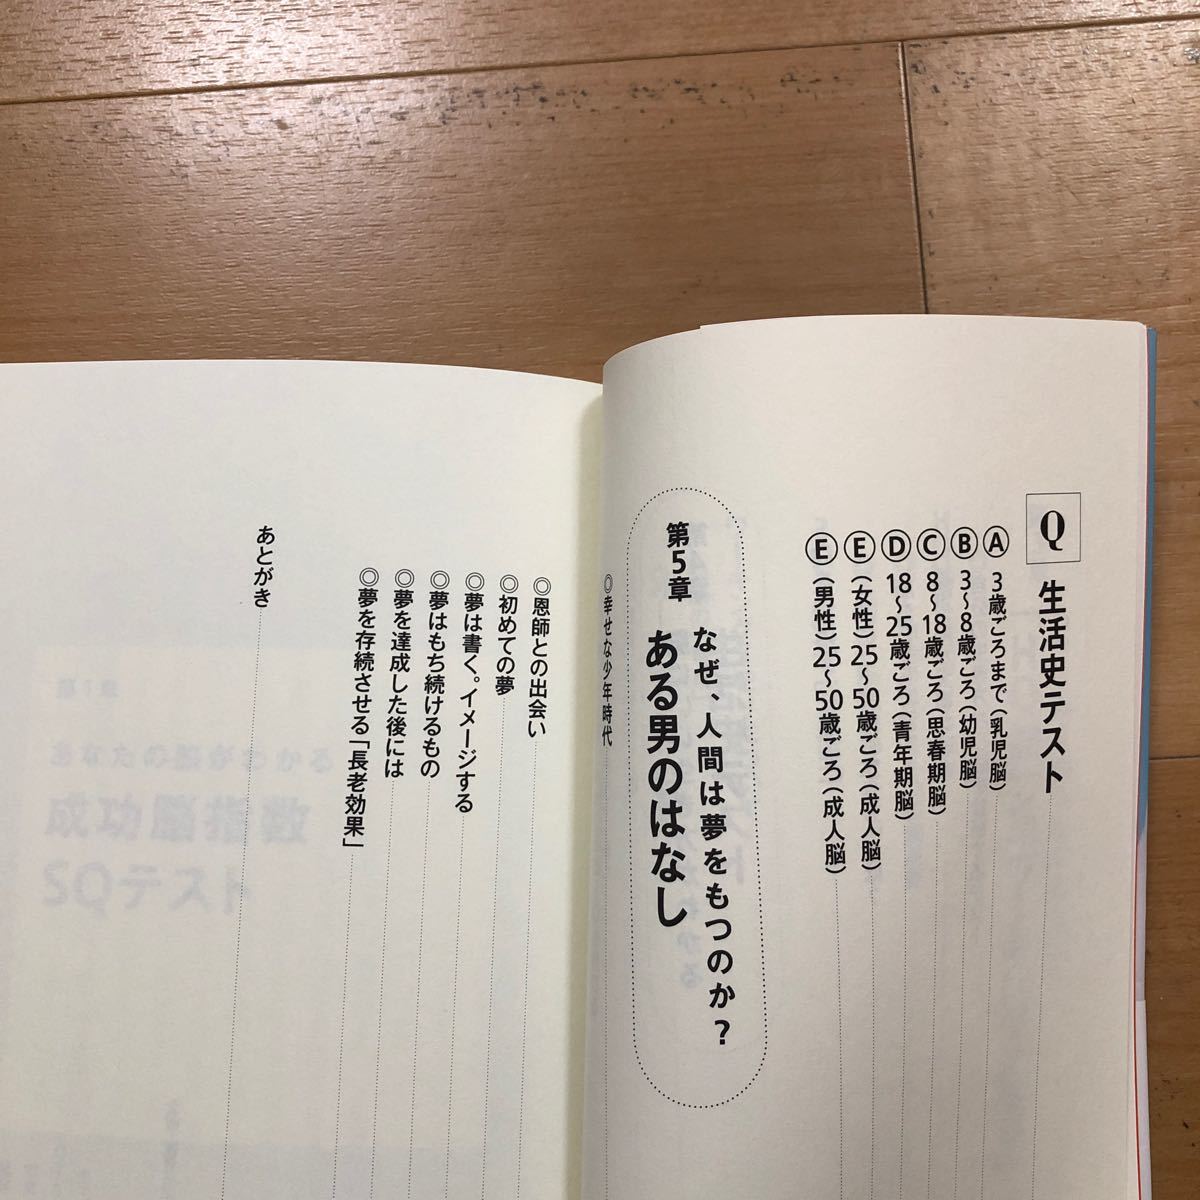 Q 生活史テスト
Ⓐ 3歳ごろまで(乳児脳)
Ⓑ 3〜8歳ごろ(幼児脳)
Ⓒ 8〜18歳ごろ(思春期脳)
Ⓓ 18〜25歳ごろ(青年期脳)
Ⓔ (女性)25〜50歳ごろ(成人脳)
Ⓔ (男性)25〜50歳ごろ(成人脳)
第5章 なぜ、人間は夢をもつのか?
ある男のはなし
◎幸せな少年時代
◎恩師との出会い
◎初めての夢
◎夢は書く。イメージする
◎夢はもち続けるもの
◎夢を達成した後には
◎夢を存続させる「長老効果」
あとがき
第1章
あなたの脳がわかる
成功脳指数
SQテスト